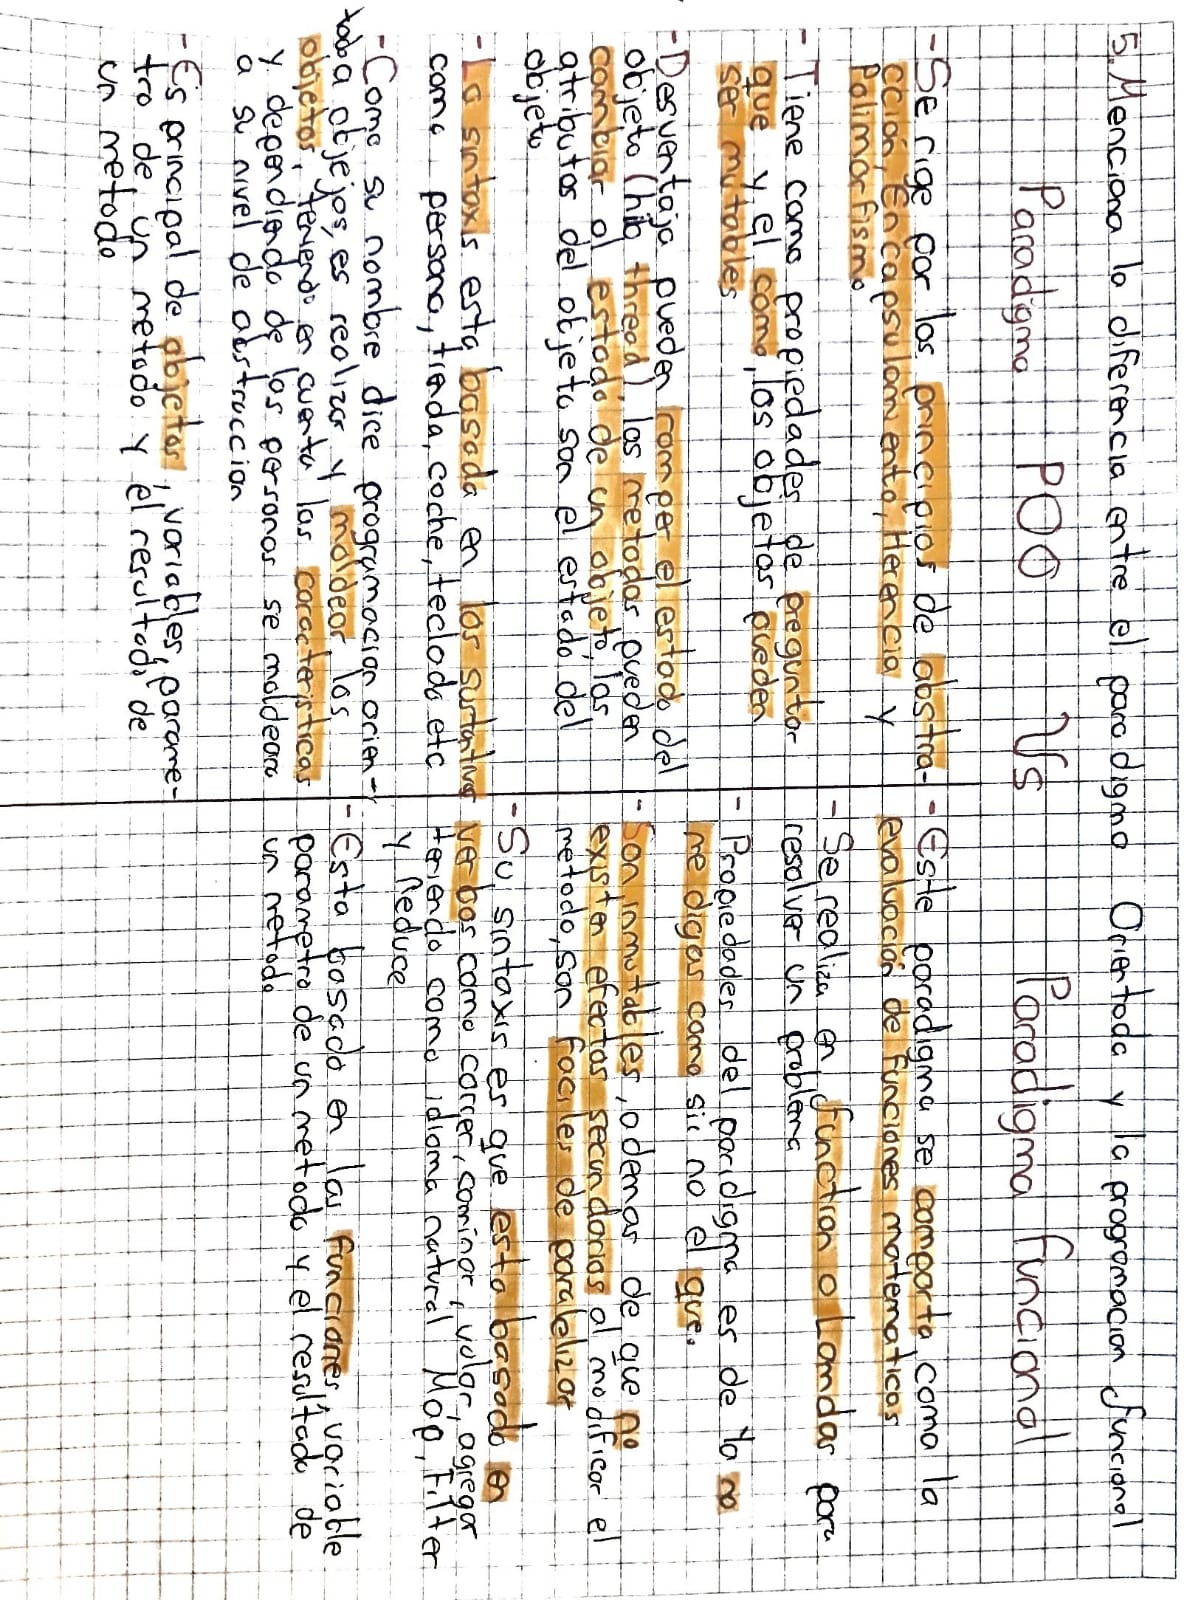 5. Menciona la diferencia entre el paradigma Orientado y la programacion funcional
Paradigma POO Vs Paradigma funcional
- Se rige por los principios de abstra-
cción, Encapsulamiento, Herencia y
Polimorfismo
- Tiene como propiedades de preguntar
que y el como, los objetos pueden
ser mutables
- Desventaja pueden romper el estado del
objeto (hilo thread) los metodos pueden
cambiar al estado de un objeto, los
atributos del objeto son el estado del
objeto
- La sintaxis esta basada en los sustantivo
como persona, tienda, coche, teclado etc
- Como su nombre dice programacion orien-
tada objejos, es realizar y moldear los
objetos, teniendo en cuenta las caracteristicas
y dependiendo de las personas se moldeara
a su nivel de abstraccion
- Es principal de objetos, variables, parame-
tro de un metodo y el resultado de
un metodo
- Este paradigma se comporta como la
evaluación de funciones matematicas
- Se realiza en function o Lamdas para
resolver un problema
- Propiedades del paridigma es de ya no
me digas como sii no el que.
- Son inmutables, ademas de que no
existen efectos secundarios al modificar el
metodo, son faciles de paralelizar
- Su sintaxis es que esta basado en
verbos como correr, caminar, volar, agregar
teniendo como idioma natural Map, Filter
y Reduce
- Esta basado en las funciones, variable
parametro de un metodo y el resultado de
un metodo